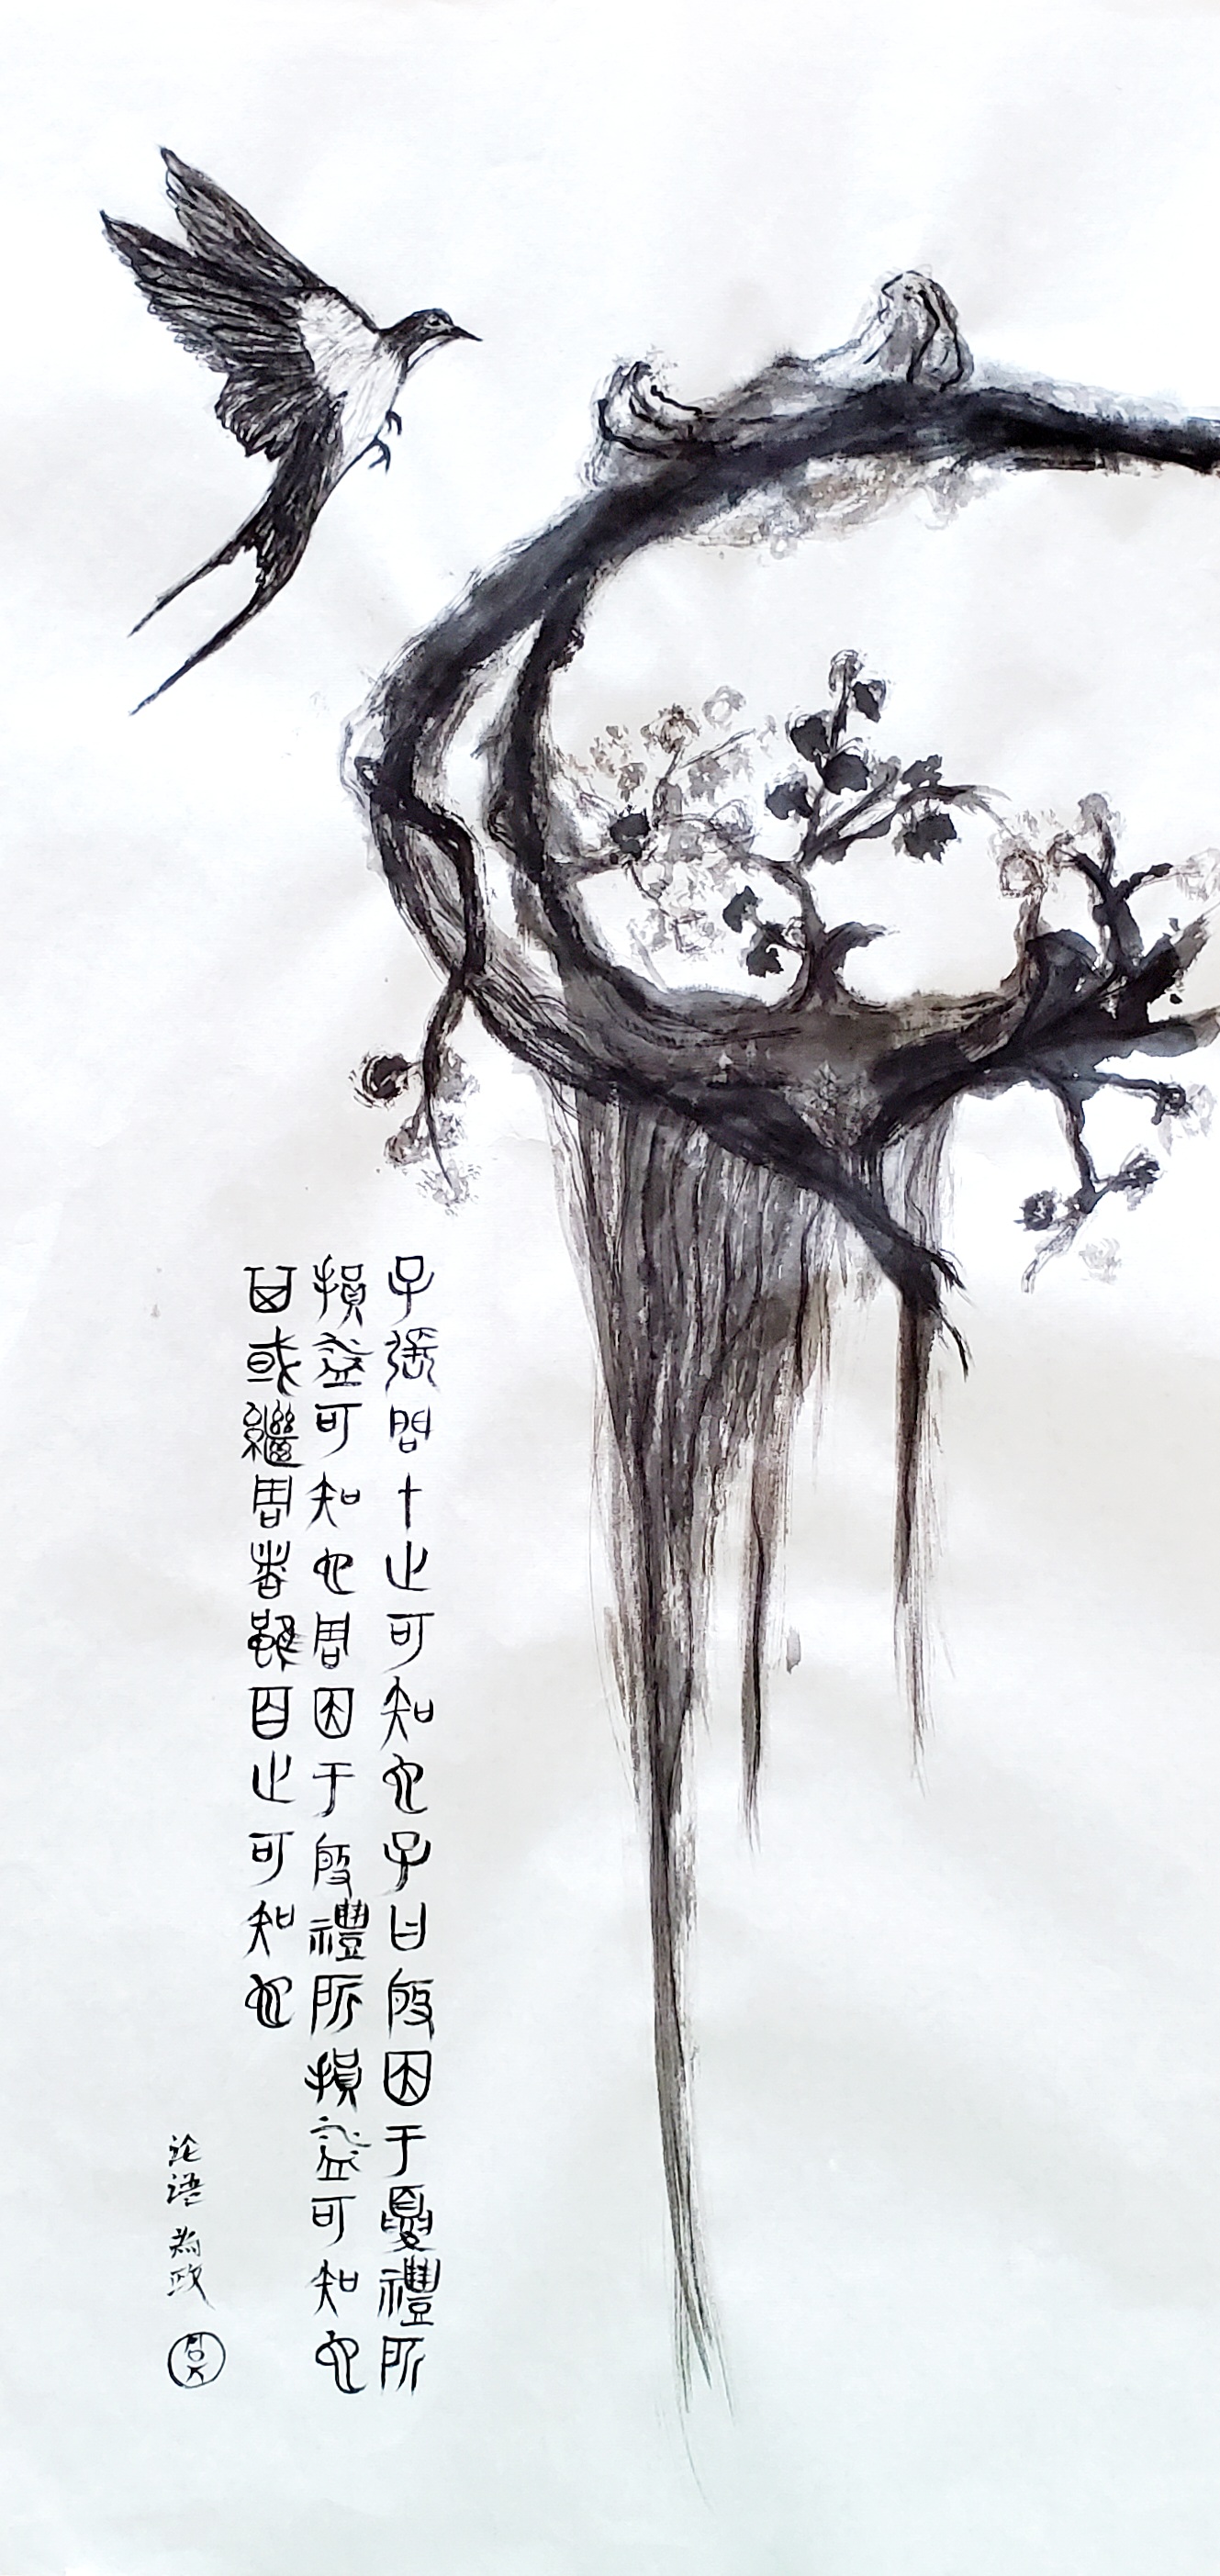 子張問十世可知也子曰殷因于夏禮所
損益可知也周因于殷禮所損益可知也
其或繼周者雖百世可知也
论语 為政